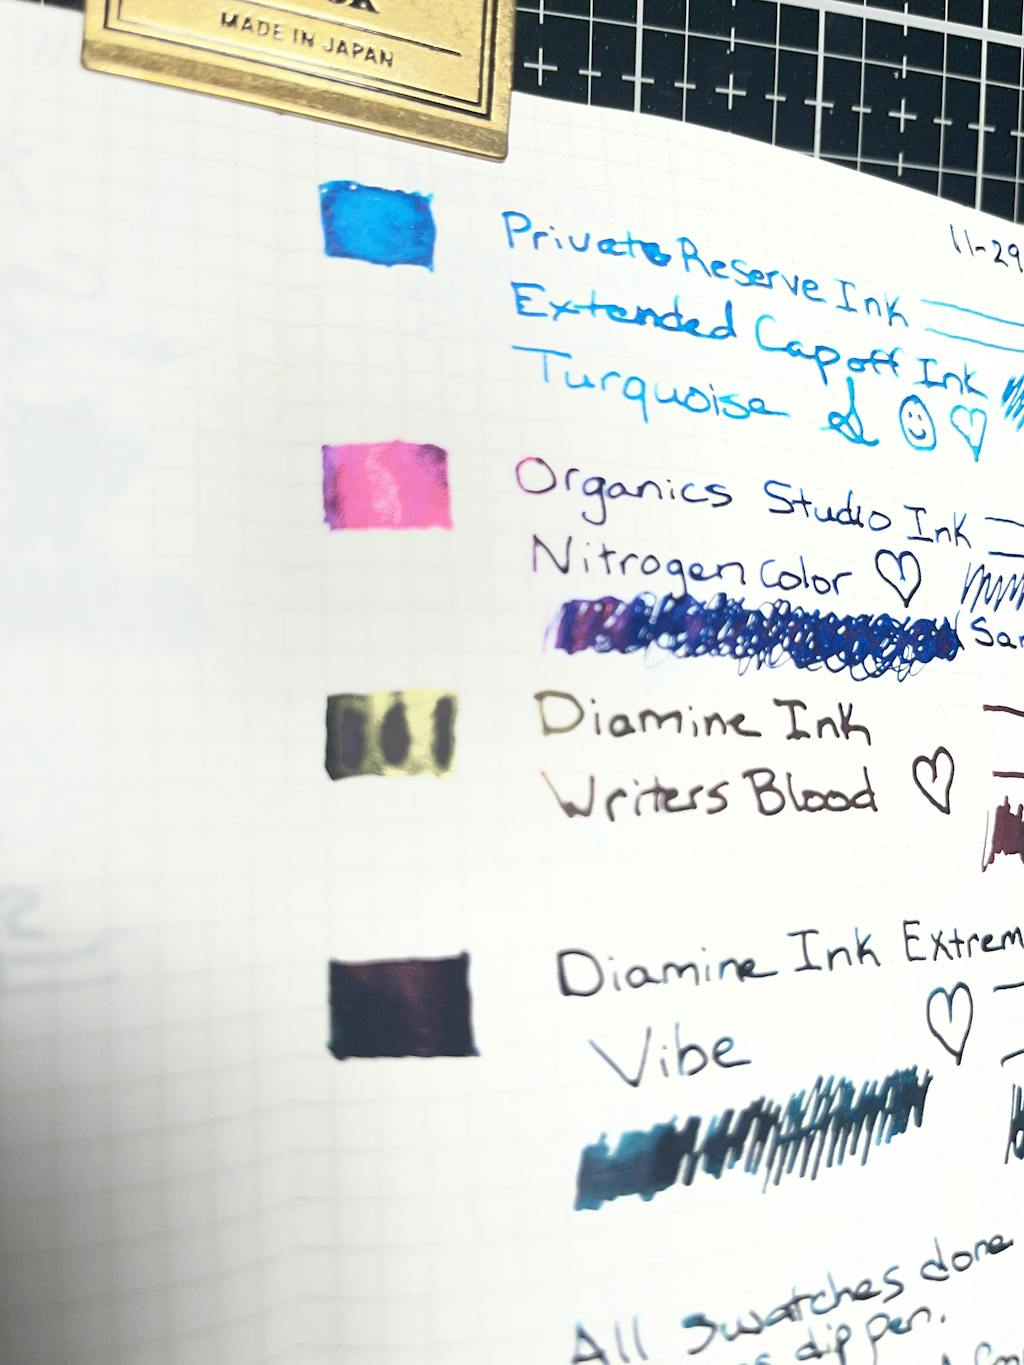 MADE IN JAPAN
11-29
Private Reserve Ink
Extended Cap off Ink
Turquoise
Organics Studio Ink
Nitrogen Color
Diamine Ink
Writers Blood
Diamine Ink
Vibe
All Swatches done
dip pen.